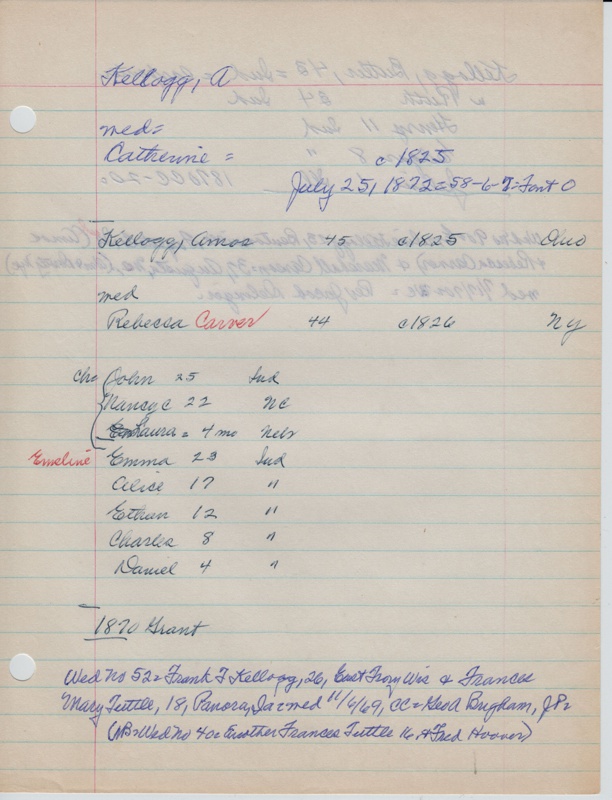 Kellogg, A
med=
Catherine = c1825
July 25, 1872=58-6-7=Font O
Kellogg, Amos 45 c1825 Ohio
med
Rebecca Carver 44 c1826 NY
Ch= John 25 Ind
Nancy C 22 NC
Laura = 4 mo Nebr
Emeline Emma 23 Ind
Alice 17 "
Ethan 12 "
Charles 8 "
Daniel 4 "
1870 Grant
Wed No 52=Frank F Kellogg, 26, East Troy Wis & Frances
Mary Tuttle, 18, Panora, Ia=med 11/6/69, CC=Geo A Bingham, JP=
(NB=Wed No 40= Frances Tuttle 16 & Fred Hoover)